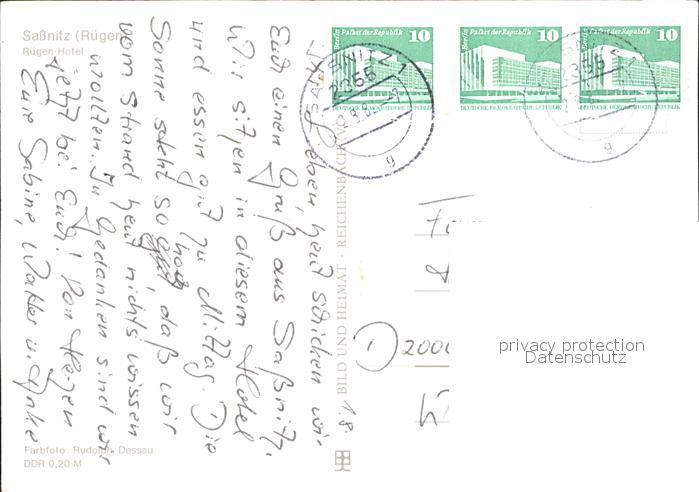 Saßnitz (Rügen)
Rügen-Hotel
Berlin Palast der Republik 10
DEUTSCHE DEMOKRATISCHE REPUBLIK
Berlin Palast der Republik 10
DEUTSCHE DEMOKRATISCHE REPUBLIK
Berlin Palast der Republik 10
DEUTSCHE DEMOKRATISCHE REPUBLIK
SASSNITZ 1
2355
g
SASSNITZ 1
2355
g
1.8.
heut schicken wir
Euch einen Gruß aus Saßnitz.
Wir sitzen in diesem Hotel
und essen gut zu Mittag. Die
Sonne steht so hoch daß wir
vom Strand heut nichts wissen
wollten. In Gedanken sind wir
jetzt bei Euch! Von Herzen
Eure Sabine, Walter u. Anke
BILD UND HEIMAT · REICHENBACH
1
2000
privacy protection
Datenschutz
Farbfoto: Rudolph, Dessau
DDR 0,20 M